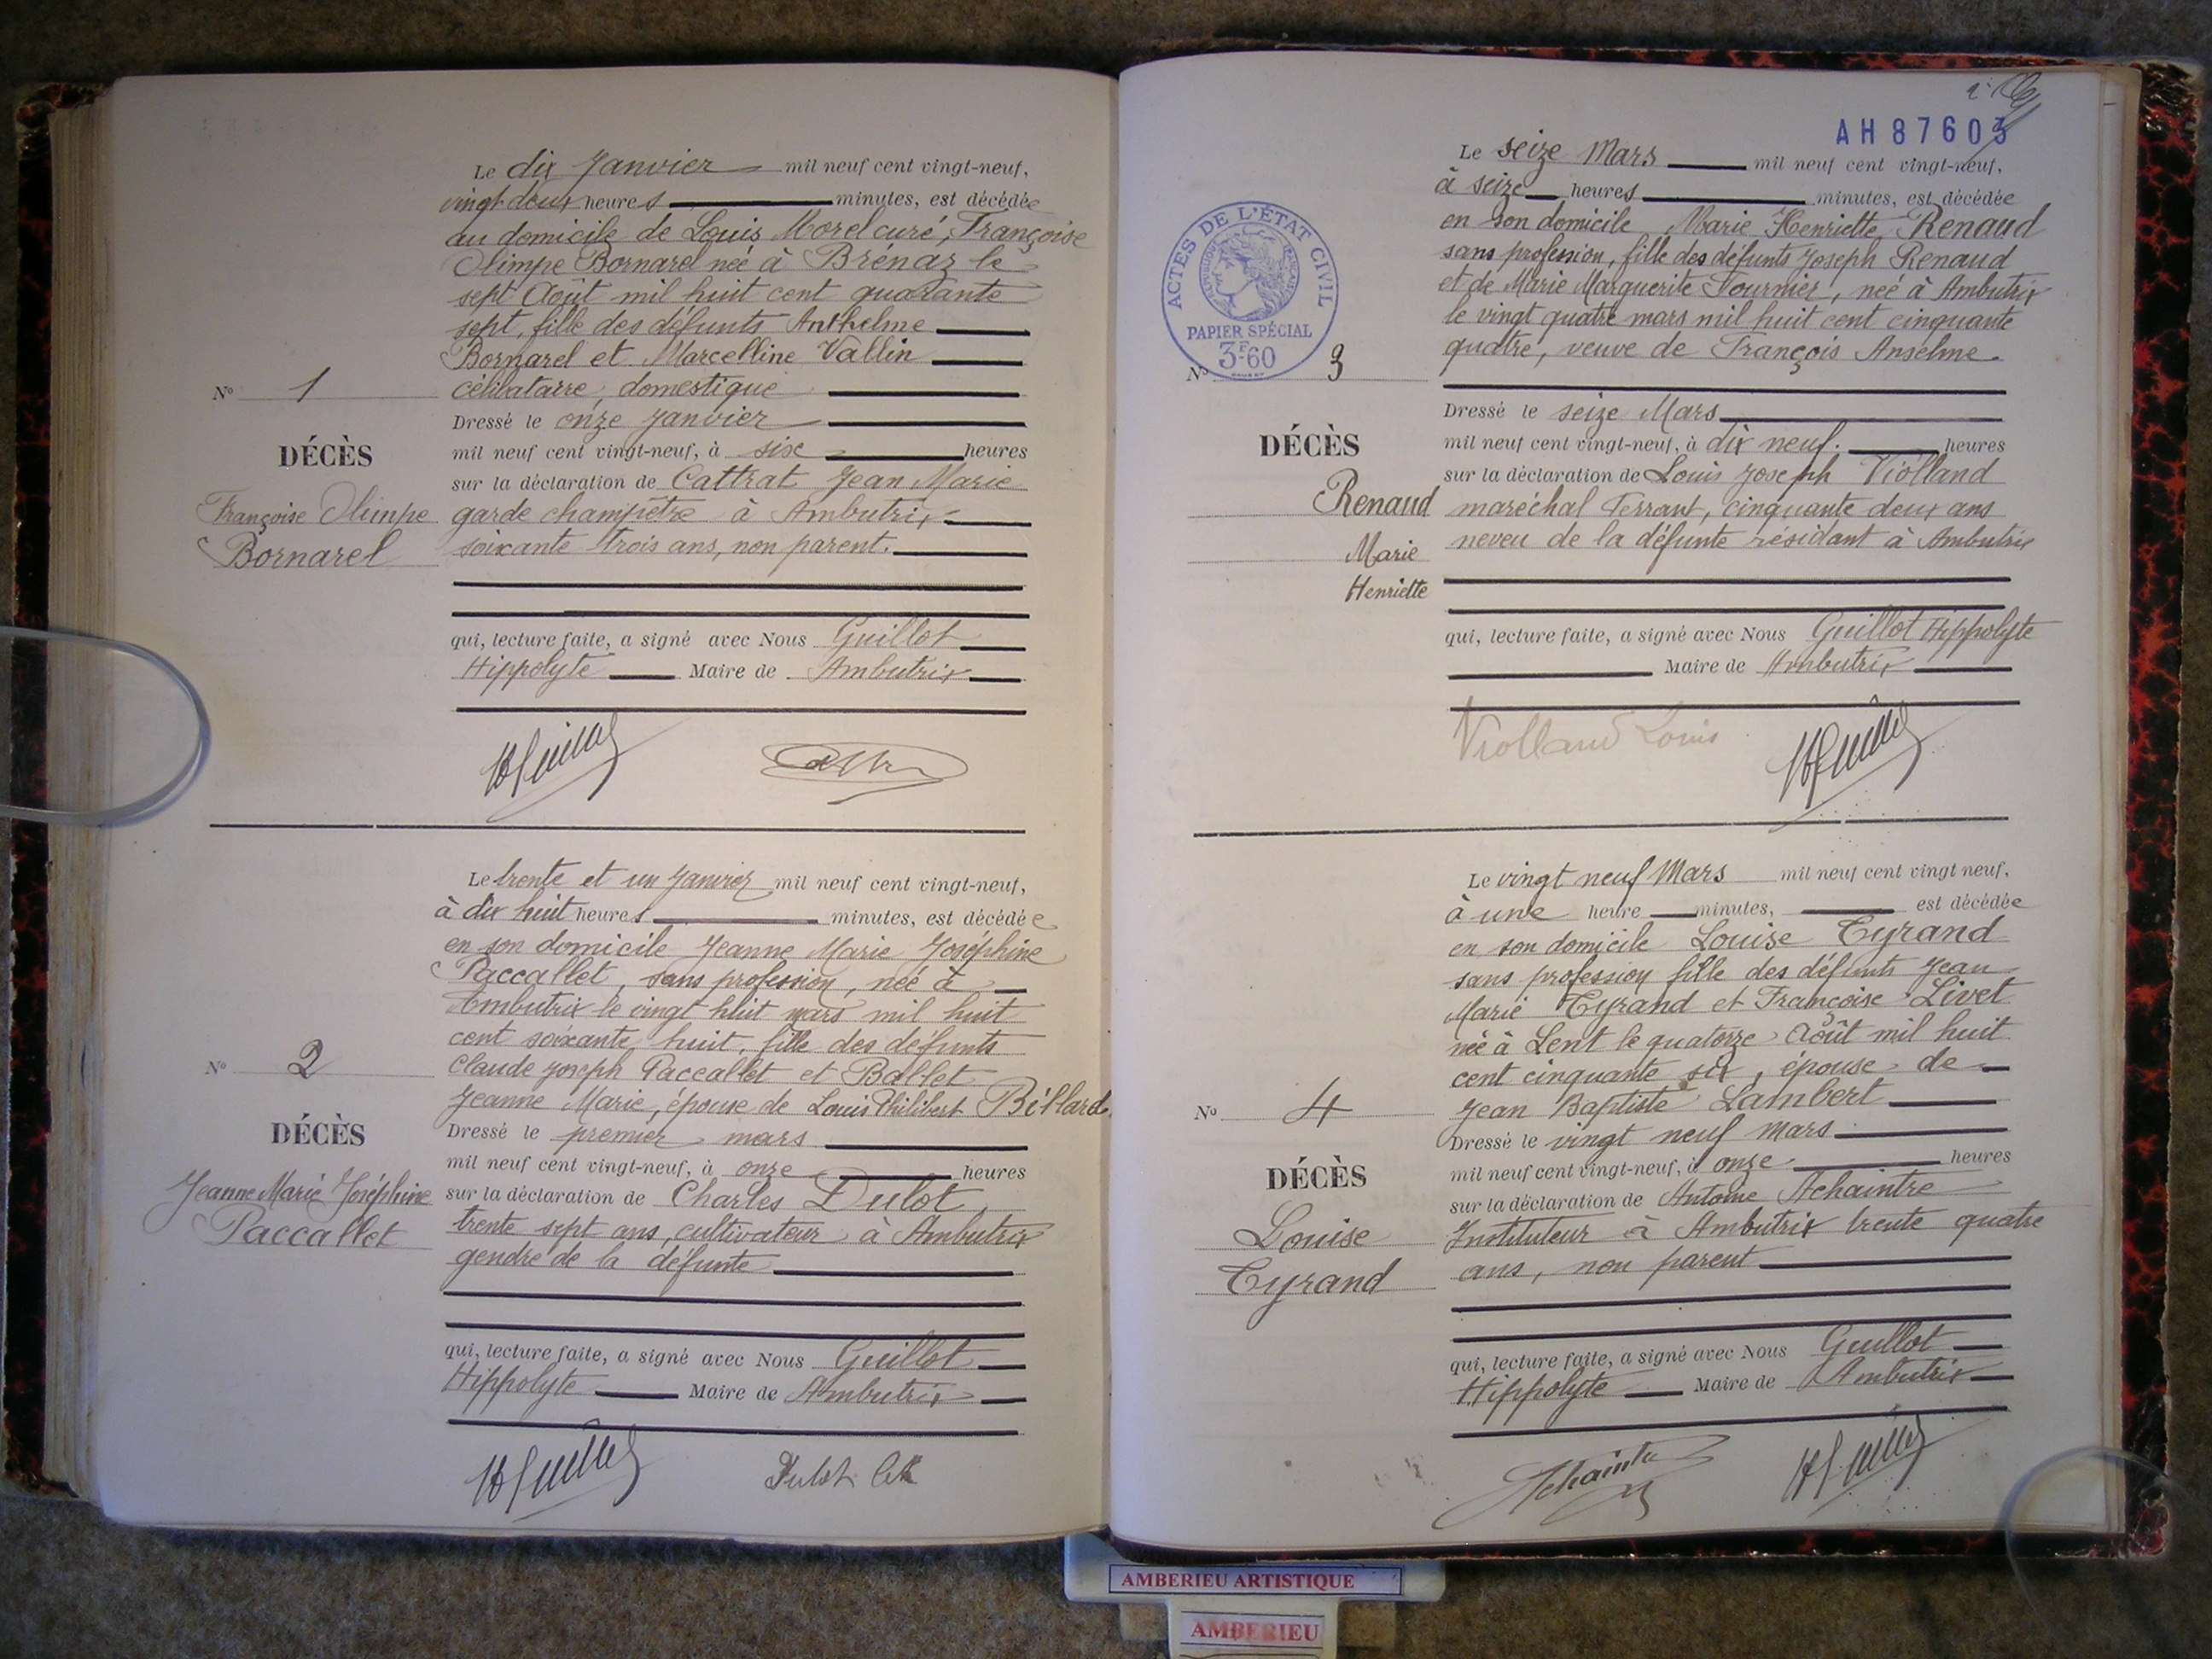 Le dix Janvier mil neuf cent vingt-neuf,
vingt deux heures minutes, est décédée
au domicile de Louis Morel curé, Françoise
Olimpe Bornarel née à Brénaz le
sept Août mil huit cent quarante
sept, fille des défunts Anthelme
Bornarel et Marcelline Vallin
célibataire, domestique
Dressé le onze Janvier
mil neuf cent vingt-neuf, à six heures
sur la déclaration de Cattrat Jean Marie
garde champêtre à Ambutrix
soixante trois ans, non parent.
qui, lecture faite, a signé avec Nous Guillot
Hippolyte Maire de Ambutrix
N° 1
DÉCÈS
Françoise Olimpe
Bornarel
Le trente et un Janvier mil neuf cent vingt-neuf,
à dix huit heures minutes, est décédée
en son domicile Jeanne Marie Joséphine
Paccallet, sans profession, née à
Ambutrix le vingt huit mars mil huit
cent soixante huit, fille des défunts
Claude Joseph Paccallet et Ballet
Jeanne Marie, épouse de Louis Philibert Billard
Dressé le premier mars
mil neuf cent vingt-neuf, à onze heures
sur la déclaration de Charles Dulot,
trente sept ans, cultivateur à Ambutrix
gendre de la défunte
qui, lecture faite, a signé avec Nous Guillot
Hippolyte Maire de Ambutrix
N° 2
DÉCÈS
Jeanne Marie Joséphine
Paccallet
AH 87603
Le seize Mars mil neuf cent vingt-neuf,
à seize heures minutes, est décédée
en son domicile Marie Henriette Renaud
sans profession, fille des défunts Joseph Renaud
et de Marie Marguerite Fournier, née à Ambutrix
le vingt quatre mars mil huit cent cinquante
quatre, veuve de François Anselme.
Dressé le seize Mars
mil neuf cent vingt-neuf, à dix neuf heures
sur la déclaration de Louis Joseph Violland
maréchal Ferrant, cinquante deux ans
neveu de la défunte résidant à Ambutrix
qui, lecture faite, a signé avec Nous Guillot Hippolyte
Maire de Ambutrix
Violland Louis
ACTES DE L'ÉTAT CIVIL
RÉPUBLIQUE FRANÇAISE
PAPIER SPÉCIAL
3F60
N° 3
DÉCÈS
Renaud
Marie
Henriette
Le vingt neuf Mars mil neuf cent vingt neuf,
à une heure minutes, est décédée
en son domicile Louise Tyrand
sans profession fille des défunts Jean
Marie Tyrand et Françoise Livet
née à Lent le quatorze Août mil huit
cent cinquante six, épouse de
Jean Baptiste Lambert
Dressé le vingt neuf Mars
mil neuf cent vingt-neuf, à onze heures
sur la déclaration de Antoine Achaintre
Instituteur à Ambutrix trente quatre
ans, non parent
qui, lecture faite, a signé avec Nous Guillot
Hippolyte Maire de Ambutrix
Achaintre
N° 4
DÉCÈS
Louise
Tyrand
AMBERIEU ARTISTIQUE
AMBERIEU